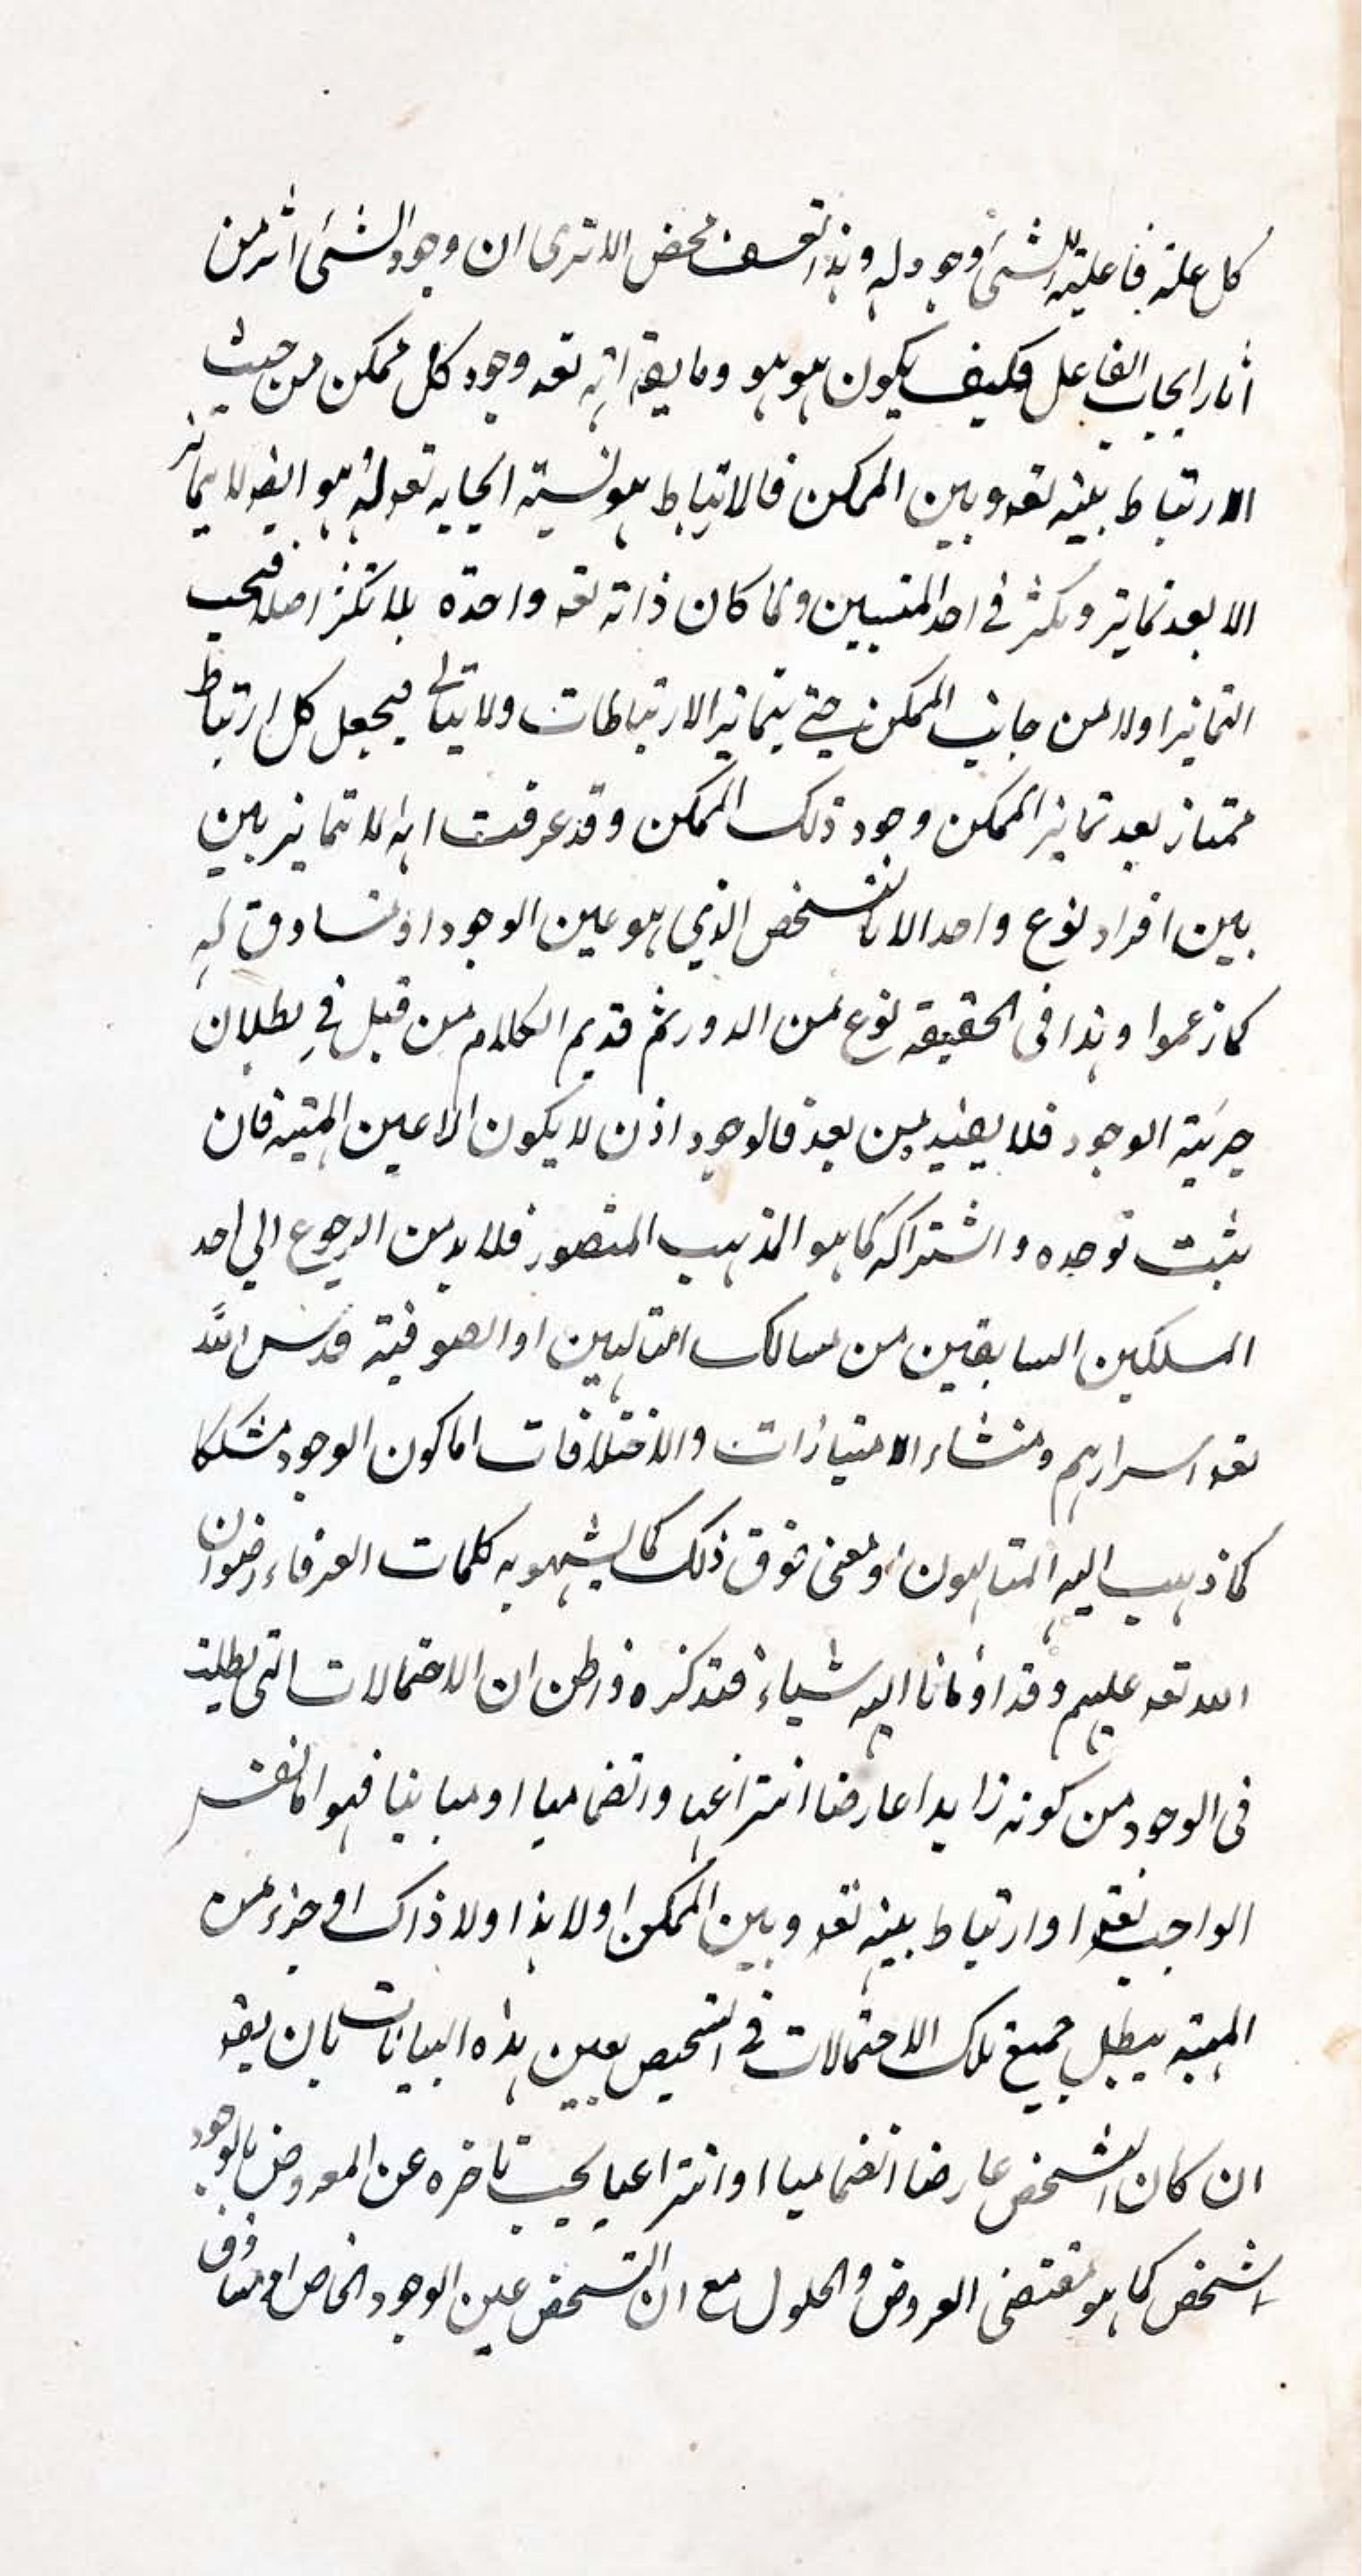 كل علة فاعلية للشئ وجود له وهذا تعسف محض الا ترى ان وجود الشئ اثر من
آثار ايجاب الفاعل فكيف يكون هو هو وما يقه انه تعه وجود كل ممكن من حيث
الارتباط بينه تعه وبين الممكن فالارتباط هو نسبة ايجابه تعه له هو ايضه لا يتمايز
الا بعد تمايز وتكثر في احد المنتسبين ولما كان ذاته تعه واحدة بلا تكثر اصلا فيجب
التمايز اولا من جانب الممكن حتى يتمايز الارتباطات ولا يتأتى فيجعل كل ارتباط
ممتاز بعد تمايز الممكن وجود ذلك الممكن وقد عرفت انه لا تمايز بين
بين افراد نوع واحد الا بالتشخص الذي هو عين الوجود او مساوق له
كما زعموا وهذا فى الحقيقة نوع من الدور ثم قديم الكلام من قبل في بطلان
جزئية الوجود فلا يفيد من بعد فالوجود اذن لا يكون الا عين المهية فان
يثبت توحده واشتراكه كما هو المذهب المنصور فلا بد من الرجوع الى احد
المسلكين السابقين من مسالك المتالهين او الصوفية قدس الله
تعه اسرارهم ومنشاء الامتيازات والاختلافات اما كون الوجود مشككا
كما ذهب اليه المتالهون او معنى فوق ذلك كما يشهد به كلمات العرفاء رضوان
الله تعه عليهم وقد اومانا اليه شياء فتذكره وظن ان الاحتمالات التى بطلت
فى الوجود من كونه زايدا عارضا انتزاعيا وانضماميا او مباينا فهو اما نفس
الواجب تعه او ارتباط بينه تعه وبين الممكن اولا هذا ولا ذاك او جزء من
المهية يبطل جميع تلك الاحتمالات في التشخيص بعين هذه البيانات بان يقه
ان كان التشخص عارضا انضماميا او انتزاعيا يجب تاخره عن المعروض بالوجود
الشخص كما هو مقتضى العروض والحلول مع ان التشخص عين الوجود الخاص او مساوق